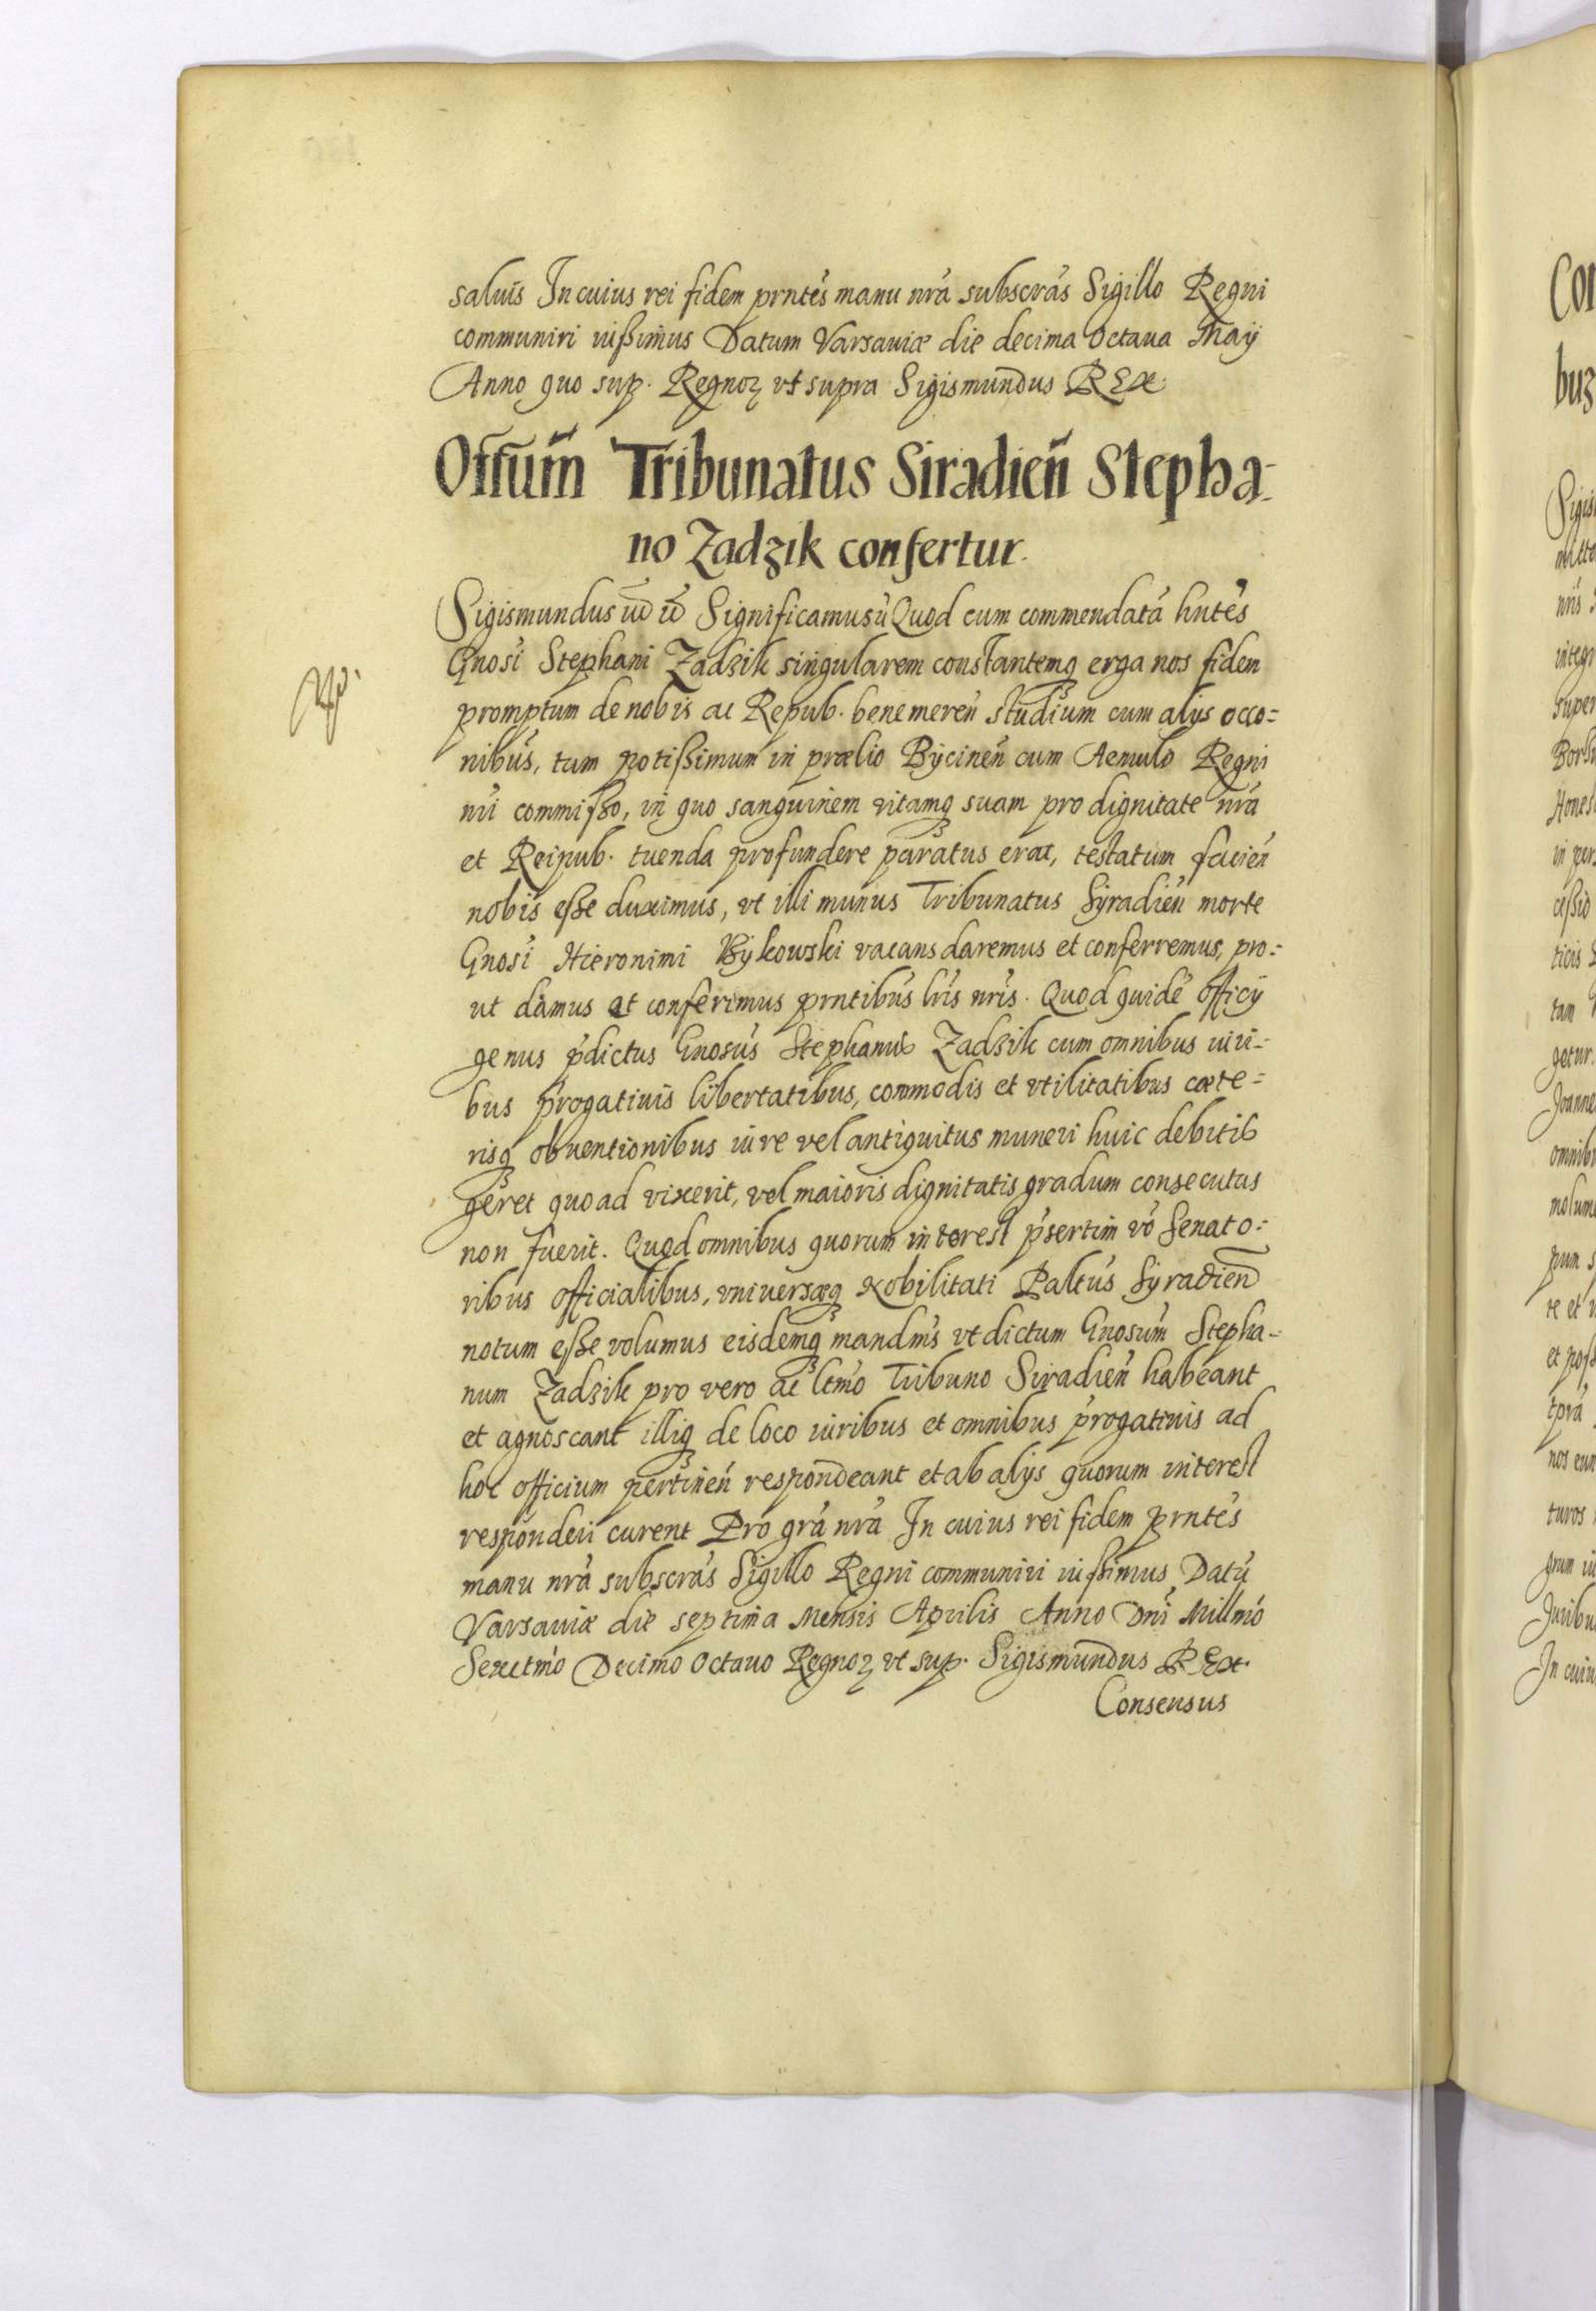 saluis In cuius rei fidem prntes manu nrã subscrãs Sigillo Regni
communiri iußimus Datum Varsauiæ die decima Octaua Maÿ
Anno quo sup. Regnoꝝ vt supra Sigismundus REX
Offium̃ Tribunatus Siradień Stepha-
no Zadzik confertur.
Sigismundus Significamus Quod cum commendatã hntes
Gnosi Stephani Zadzik singularem constantemq erga nos fidem
promptum de nobis ac Repub. bene mereñ studium cum alijs occo=
nibus, tum potißimum in prælio Byćineñ cum Aemulo Regni
nri commißo, in quo sanguinem vitamq suam pro dignitate nrã
et Reipub. tuenda profundere paratus erat, testatum facień
nobis eße duximus, vt illi munus Tribunatus Syradień morte
Gnosi Hieronimi Bykowski vacans daremus et conferremus, pro=
ut damus et conferimus prntibus lris nris. Quod quidẽ officÿ
genus p̃dictus Gnosus Stephanus Zadzik cum omnibus iuri=
bus p̃rogatiuis libertatibus, commodis et vtilitatibus cæte=
risq obuentionibus iure vel antiquitus muneri huic debitis
geret quo ad vixerit, vel maioris dignitatis gradum consecutus
non fuerit. Quod omnibus quorum interest p̃sertim võ Senato=
ribus officialibus, vniuersæq Nobilitati Paltus Syradień
notum eße volumus eisdemq mandms vt dictum Gnosum Stepha-
num Zadzik pro vero ac ltmo Tribuno Siradień habeant
et agnoscant illiq de loco iuribus et omnibus p̃rogatiuis ad
hoc officium pertineñ respondeant et ab alijs quorum interest
responderi curent Pro grã nrã In cuius rei fidem prntes
manu nrã subscrãs Sigillo Regni communiri iußimus Datũ
Varsauiæ die septima Mensis Aprilis Anno Dni Millmo
Sexctmo Decimo Octauo Regnoꝝ vt sup. Sigismundus REX
Consensus